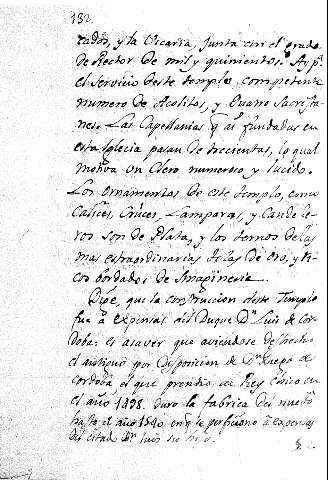 132.
cados, y la Vicaria, junta con el grado
de Rector de mil y quinientos. Ay pª
el servicio deste templo competente
numero de Acolitos, y Quatro Sacrista-
nes. Las Capellanias q ai fundadas en
esta Iglecia pasan de trecientas, lo qual
motiva un Clero numeroso y lucido.
Los ornamentos de este templo, como
Calices, Cruces, Lamparas, y Candele-
ros son de Plata, y los ternos de las
mas extraordinarias telas de oro, y ri-
cos bordados de Imagineria.
Dije, que la construccion deste Templo
fue a expensas del Duque Dn Luis de Cor-
doba: es a saver que aviendose deshecho
el antiguo por disposicion de Dn Diego de
Cordoba, el que prendio al Rey Chico en
el año 1498. duro la fabrica del nuebo
hasta el año 1540 en q se perficiono a expensas
del citado Dn Luis su hijo.